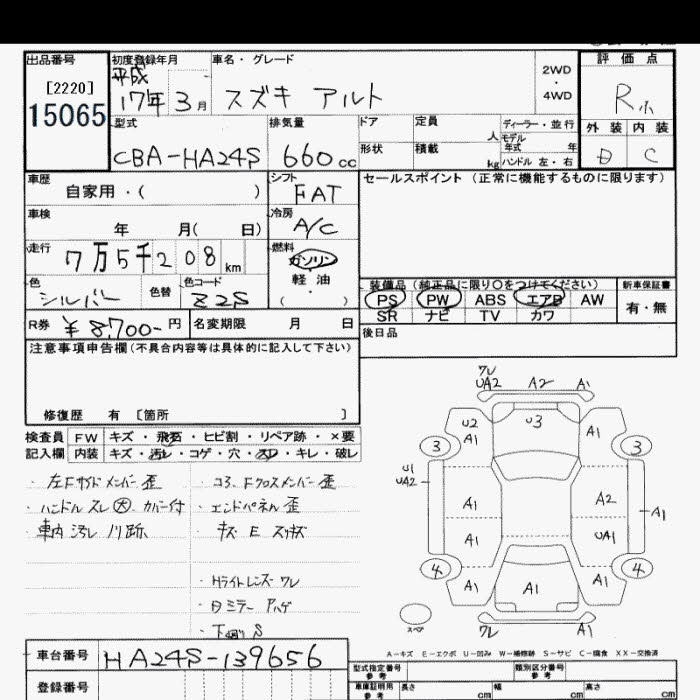 出品番号
[2220]
15065
初度登録年月
平成
17年 3月
車名・グレード
スズキ アルト
2WD
・
4WD
評価点
R小
外装 内装
B C
型式
CBA-HA24S
排気量
660cc
ドア
定員
人
ディーラー・並行
モデル
年式 年
形状
積載
kg
ハンドル 左・右
車歴
自家用・( )
シフト
FAT
セールスポイント (正常に機能するものに限ります)
車検
年 月( 日)
冷房
A/C
走行
7万5千208km
燃料
ガソリン
・
軽油
( )
色
シルバー
色替
色コード
Z2S
装備品(純正品に限り○をつけてください)
PS PW ABS エアB AW
SR ナビ TV カワ
新車保証書
有・無
R券 ¥8,700-円
名変期限 月 日
後日品
注意事項申告欄(不具合内容等は具体的に記入して下さい)
修復歴 有 [箇所 ]
検査員 FW キズ・飛石・ヒビ割・リペア跡・×要
記入欄 内装 キズ・汚レ・コゲ・穴・スレ・キレ・破レ
・左Fサイドメンバー歪
・ハンドルスレ大 カバー付
・車内汚レ
・コアF クロスメンバー歪
・エンドパネル歪
・キズ E
・Hライトレンズ ワレ
・ミラー
・下廻り S
ワレ
UA2 A2 A1
U2
A1
U3
A1
3
3
U1
UA2
A1
A2
A1
A1
UA1
4
4
A1
A1
A1
スペア
ワレ
A1
A-キズ E-エクボ U-凹み W-補修跡 S-サビ C-腐食 XX-交換済
車台番号
HA24S-139656
登録番号
型式指定番号
参考
類別区分番号
参考
車庫証明用
参考
長さ
cm
幅
cm
高さ
cm